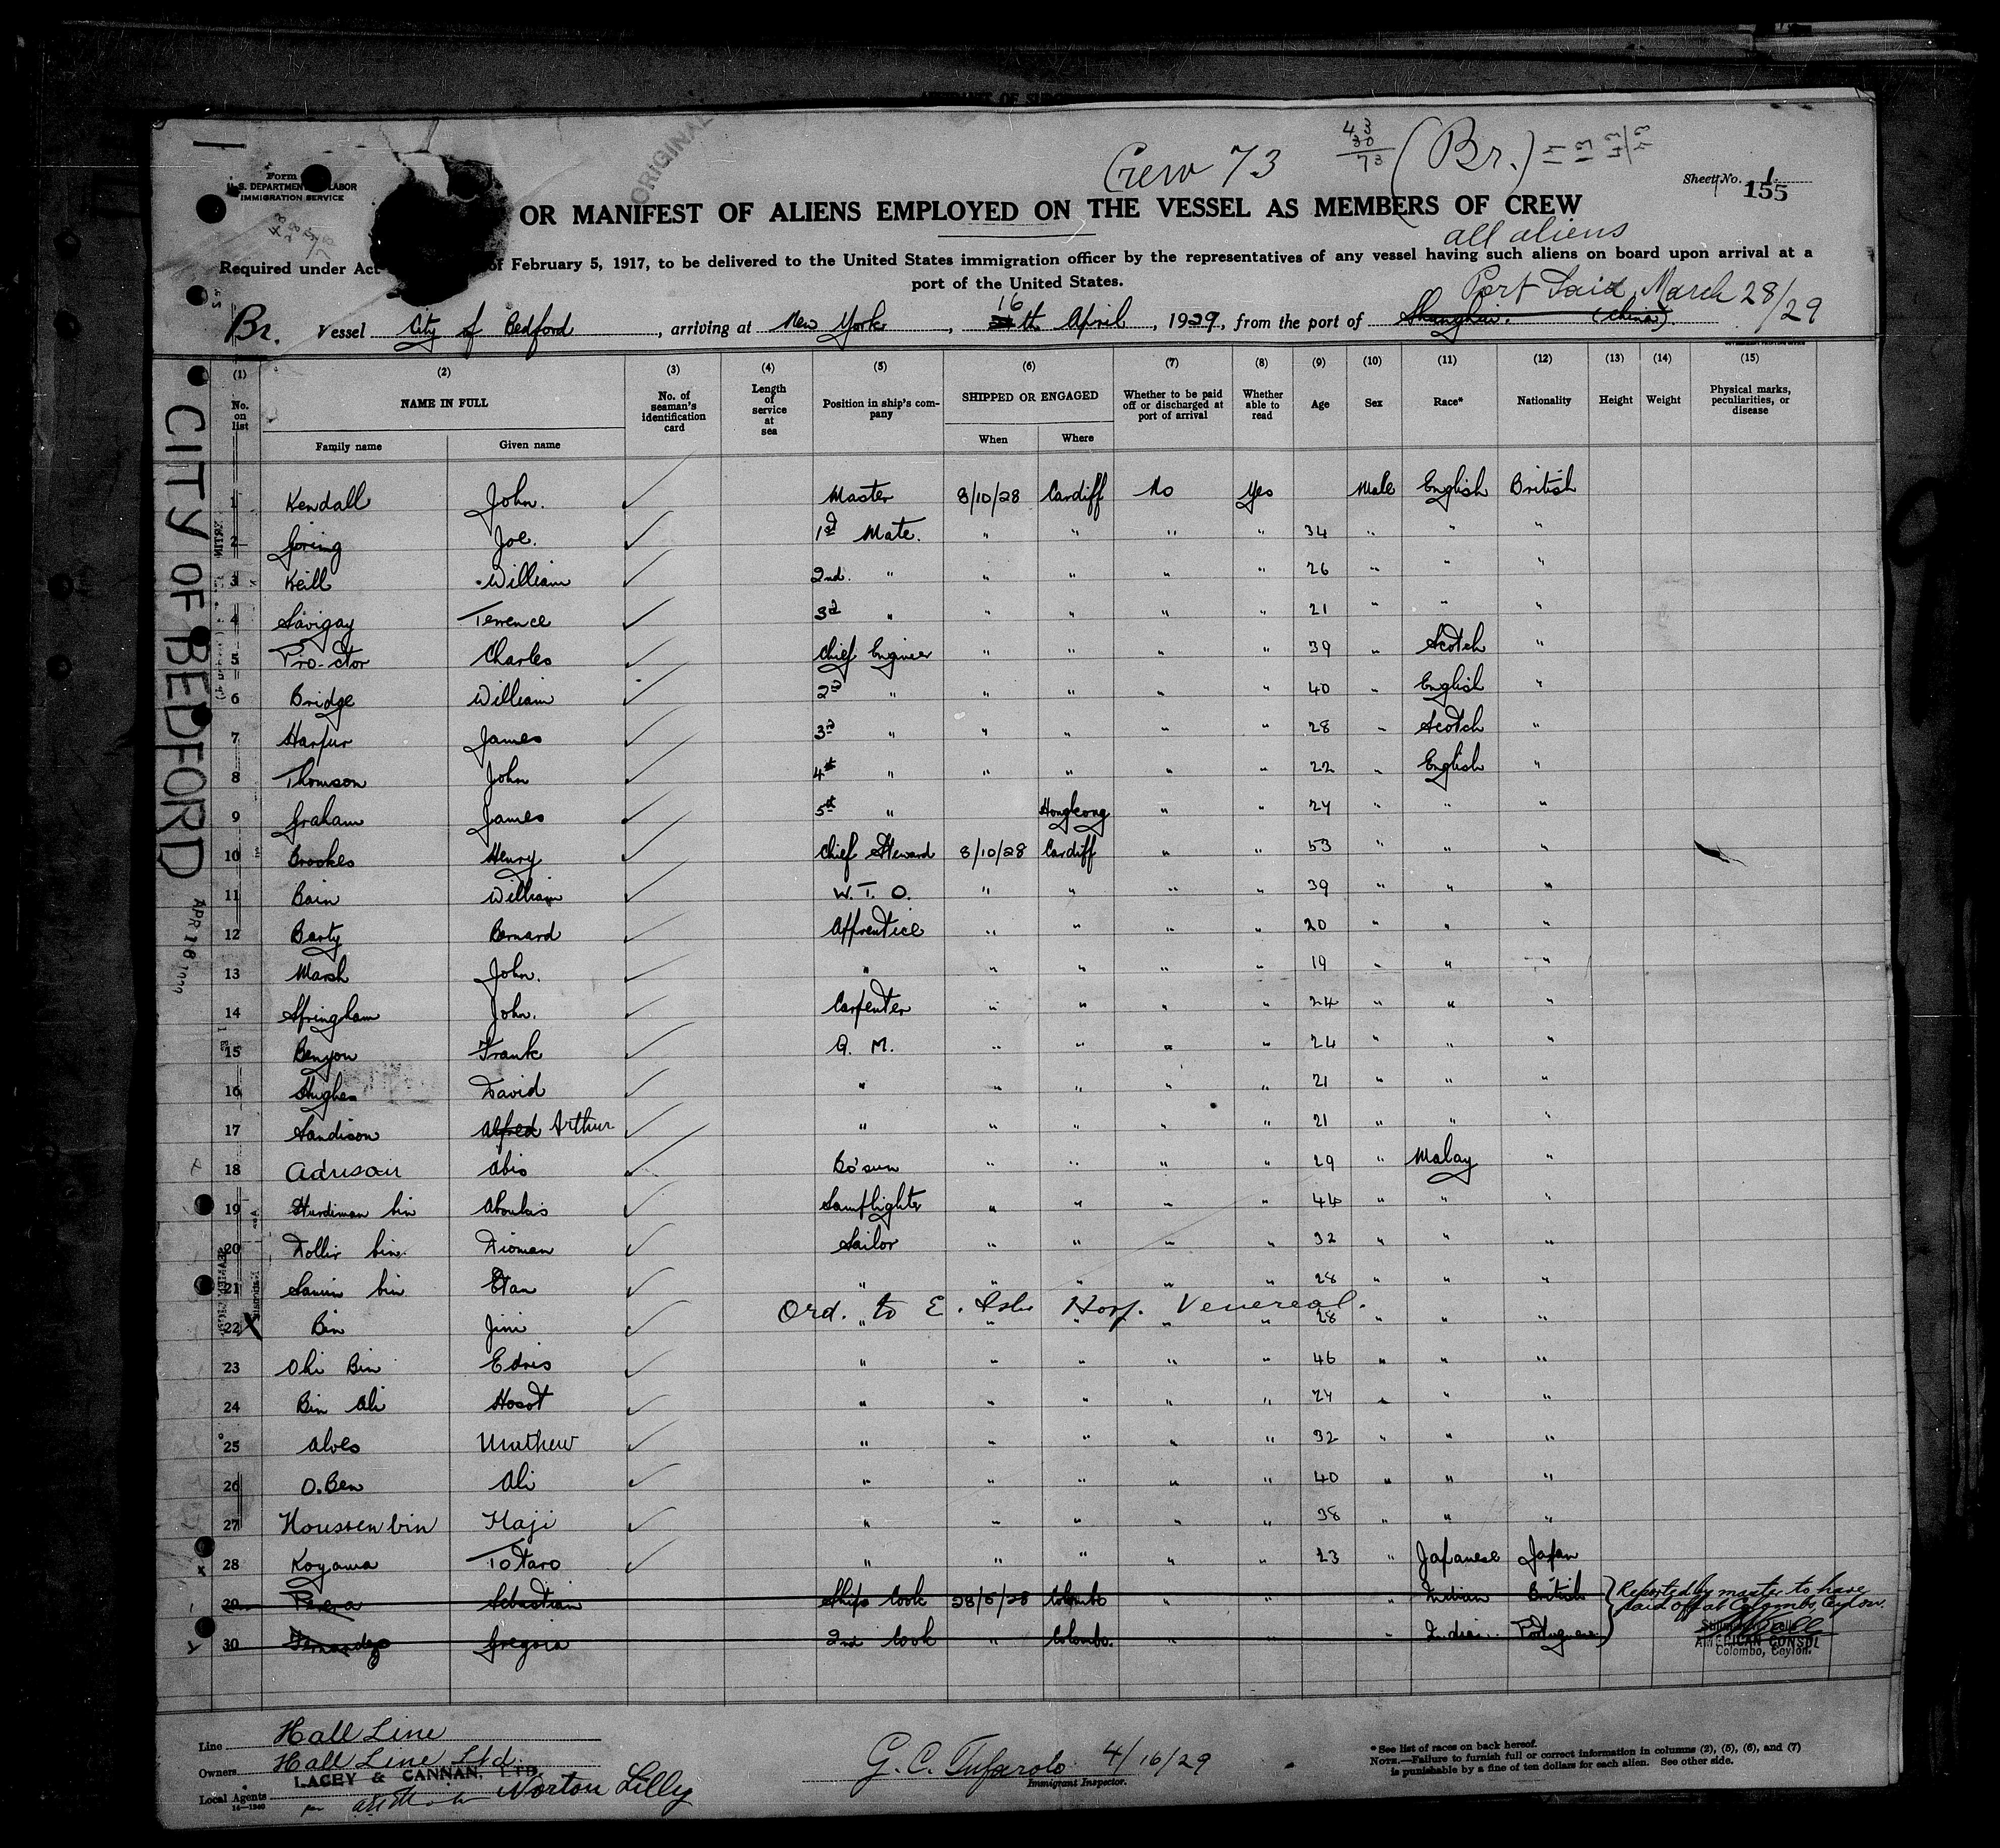 ORIGINAL
Crew 73 (Br.)
Form
U.S. DEPARTMENT LABOR
IMMIGRATION SERVICE
Sheet No. 1
155
OR MANIFEST OF ALIENS EMPLOYED ON THE VESSEL AS MEMBERS OF CREW
all aliens
Required under Act of February 5, 1917, to be delivered to the United States immigration officer by the representatives of any vessel having such aliens on board upon arrival at a
port of the United States.
Port Said March 28/29
Br. Vessel City of Bedford, arriving at New York, 16th April, 1929, from the port of Shanghai. (China).
(1) (2) (3) (4) (5) (6) (7) (8) (9) (10) (11) (12) (13) (14) (15)
No. on list NAME IN FULL No. of seaman's identification card Length of service at sea Position in ship's company SHIPPED OR ENGAGED Whether to be paid off or discharged at port of arrival Whether able to read Age Sex Race* Nationality Height Weight Physical marks, peculiarities, or disease
Family name Given name When Where
1 Kendall John. Master 8/10/28 Cardiff No Yes Male English British
2 Goring Joe. 1st Mate. " " " " 34 " " "
3 Keill William 2nd. " " " " " 26 " " "
4 Savigay Terrence 3rd " " " " " 21 " " "
5 Proctor Charles Chief Engineer " " " " 39 " Scotch "
6 Bridge William 2nd " " " " " 40 " English "
7 Harfur James 3rd " " " " " 28 " Scotch "
8 Thomson John 4th " " " " " 22 " English "
9 Graham James 5th " Hongkong " " 24 " " "
10 Brookes Henry Chief Steward 8/10/28 Cardiff " " 53 " " "
11 Bain William W. T. O. " " " " 39 " " "
12 Barty Bernard Apprentice " " " " 20 " " "
13 Marsh John. " " " " " 19 " " "
14 Springham John. Carpenter " " " " 24 " " "
15 Benyon Frank Q. M. " " " " 24 " " "
16 Hughes David " " " " " 21 " " "
17 Sandison Alfred Arthur " " " " " 21 " " "
18 Adusair Abis Bo'sun " " " " 29 " Malay "
19 Hurdiman bin Aboubis Lamplighter " " " " 44 " " "
20 Dollir bin Dioman Sailor " " " " 32 " " "
21 Samin bin Etan " " " " " 28 " " "
Ord. to E. Isle Hosp. Venereal.
22 Bin Jini " " " " " 28 " " "
23 Oki Bin Edris " " " " " 46 " " "
24 Bin Ali Hosot " " " " " 24 " " "
25 Alves Mathew " " " " " 32 " " "
26 O. Ben Ali " " " " " 40 " " "
27 Houssen bin Haji " " " " " 38 " " "
28 Koyama Totaro " " " " " 23 " Japanese Japan
29 Perera Sebastian Ships Cook 28/5/28 Colombo " " Indian British
30 Fernandez Gregoria 2nd Cook " Colombo. " " " Indian Portuguese
Reported by master to have
paid off at Colombo, Ceylon.
AMERICAN CONSUL
Colombo, Ceylon.
CITY OF BEDFORD
APR 16
Line Hall Line
Owners Hall Line Ltd.
LACEY & CANNAN, LTD.
Local Agents Norton Lilly
14—1240
G. C. Tufarolo 4/16/29
Immigrant Inspector.
*See list of races on back hereof.
NOTE.—Failure to furnish full or correct information in columns (2), (5), (6), and (7)
is punishable by a fine of ten dollars for each alien. See other side.